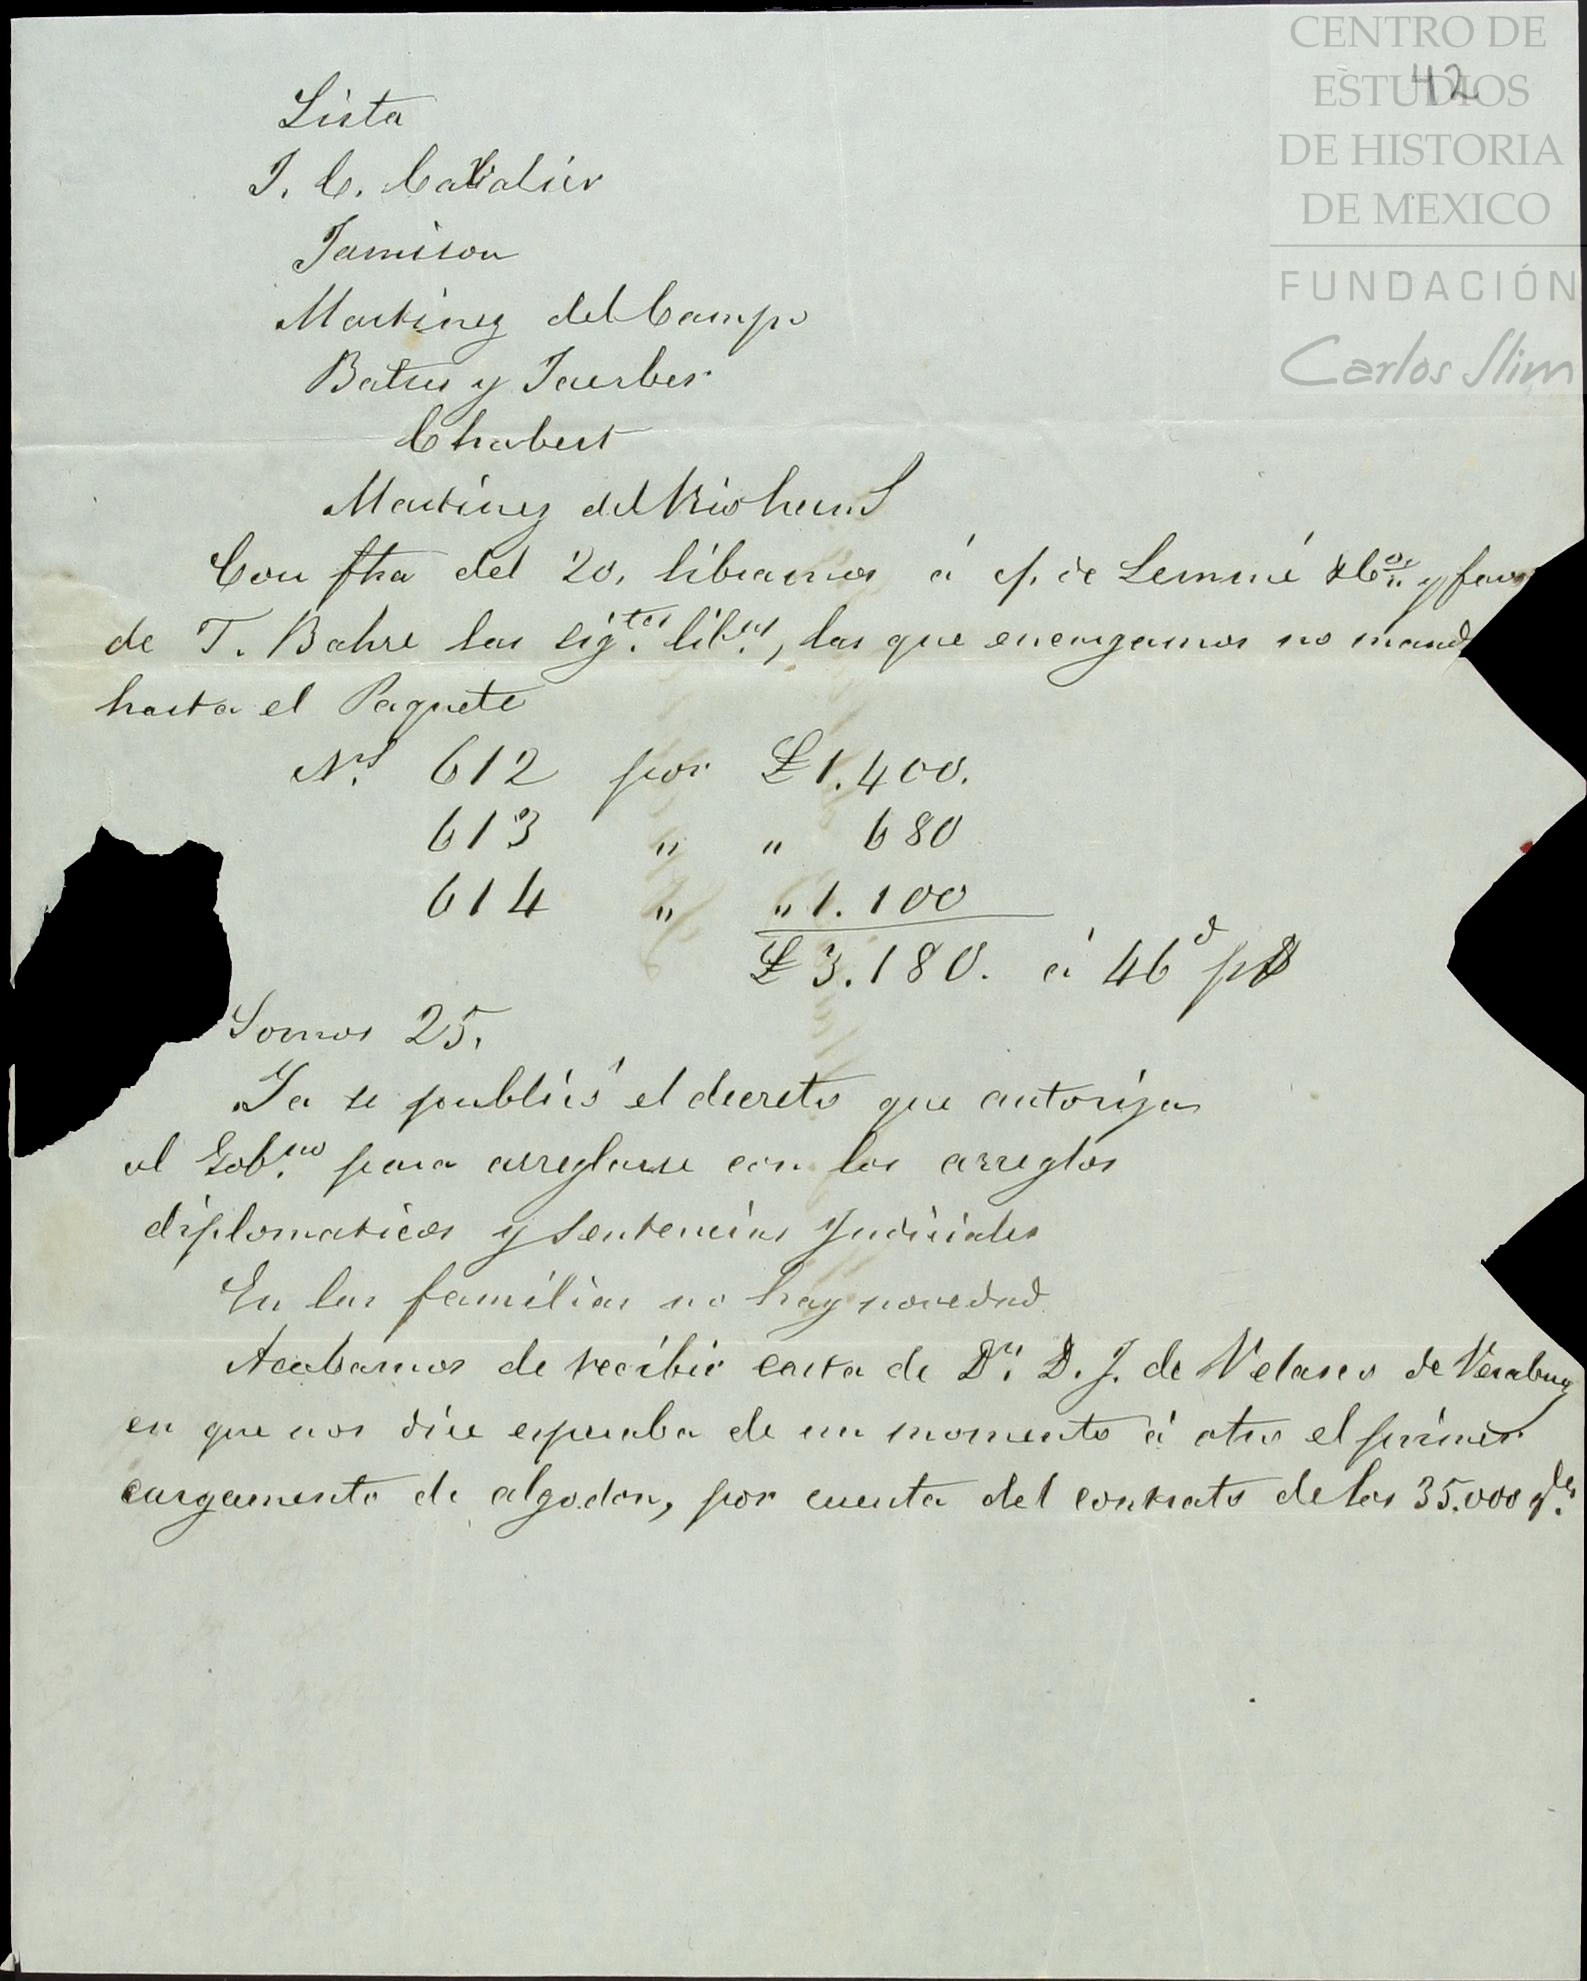 CENTRO DE
ESTUDIOS
DE HISTORIA
DE MEXICO
FUNDACIÓN
Carlos Slim
42
Lista
J. C. Cavalier
Jamison
Martinez del Campo
Bates y
Chabert
Martinez del Rio herms
Con fha del 20, libramos á c/. de Lemmé &Co.. y favor
de T. Bahre las sigtes. libs., las que encargamos no
hasta el Paquete
Ns. 612 por £1.400.
613 " " 680
614 " " 1.100
£3.180. á 46d p$
Somos 25.
Ya se publicó el decreto que autoriza
al Gobno. para arreglarse con los arreglos
diplomaticos y sentencias Judiciales
En las familias no hay novedad
Acabamos de recibir carta de Dn. D. J. de Velasco de VeraCruz
en que nos dice esperaba de un momento á otro el primer
cargamento de algodon, por cuenta del contrato de los 35.000 qles.